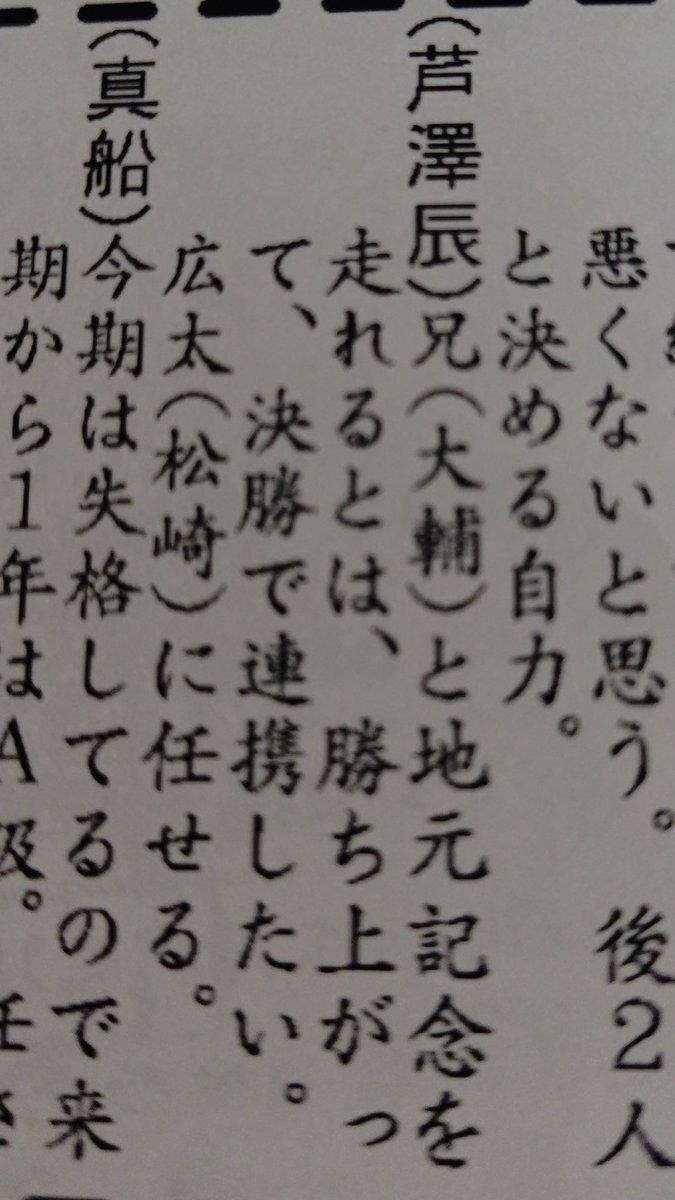 悪くないと思う。後2人
と決める自力。
(芦澤辰)兄(大輔)と地元記念を
走れるとは、勝ち上がっ
て、決勝で連携したい。
広太(松崎)に任せる。
(真船)今期は失格してるので来
期から1年はA級。任